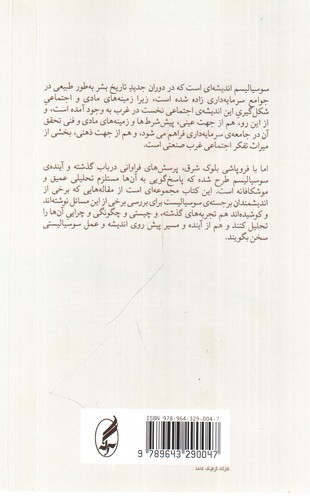 سوسیالیسم اندیشه‌ای است که در دوران جدیدِ تاریخ بشر به‌طور طبیعی در
جوامع سرمایه‌داری زاده شده است، زیرا زمینه‌های مادی و اجتماعی
شکل‌گیریِ این اندیشه‌ی اجتماعی نخست در غرب به وجود آمده است، و
از این رو، هم از جهت عینی، پیش‌شرط‌ها و زمینه‌های مادی و فنی تحقق
آن در جامعه‌ی سرمایه‌داری فراهم می شود، و هم از جهت ذهنی، بخشی از
میراث تفکر اجتماعی غرب صنعتی است.
اما با فروپاشی بلوک شرق، پرسش‌های فراوانی درباب گذشته و آینده‌ی
سوسیالیسم طرح شده که پاسخ‌گویی به آن‌ها مستلزم تحلیلی عمیق و
موشکافانه است. این کتاب مجموعه‌ای است از مقاله‌هایی که برخی از
اندیشمندان برجسته‌ی سوسیالیست برای بررسی برخی از این مسائل نوشته‌اند
و کوشیده‌اند هم تجربه‌های گذشته، و چیستی و چگونگی و چرایی آن‌ها را
تحلیل کنند و هم از آینده و مسیر پیش روی اندیشه و عمل سوسیالیستی
سخن بگویند.
ISBN 978-964-329-004-7
9 789643 290047